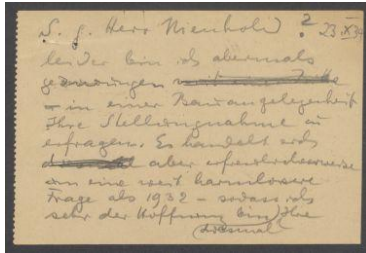 S. g. Herr Nienhold ? 23. XI 34
leider bin ich abermals
gezwungen
– in einer Bauangelegenheit
Ihre Stellungnahme zu
erfragen. Es handelt sich
aber erfreulicherweise
um eine weit harmlosere
Frage als 1932 – sodass ich
sehr der Hoffnung bin, Ihre
diesmal